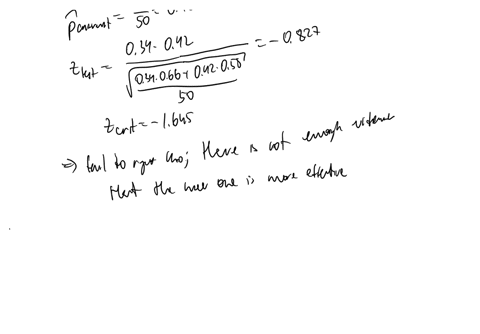 p̂ current = /50 = 0.
z test = (0.34 - 0.42) / √((0.34·0.66 + 0.42·0.58) / 50) = -0.827
z crit = -1.645
=> fail to reject H0; there is not enough evidence
that the new one is more effective